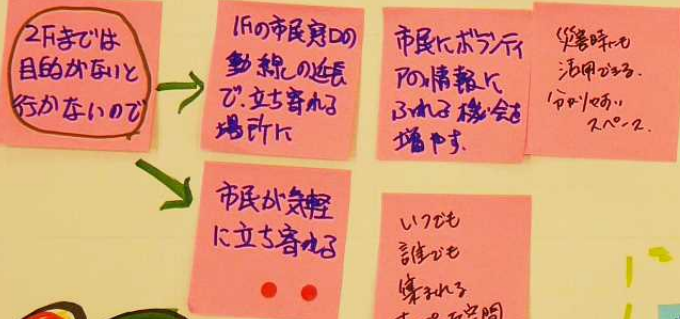 2Fまでは
目的がないと
行かないので
1Fの市民窓口の
動線の延長
で、立ち寄れる
場所に
市民にボランティ
アの情報に
ふれる機会を
増やす。
災害時にも
活用できる。
分かりやすい
スペース。
市民が気軽
に立ち寄れる
いつでも
誰でも
集まれる
空間